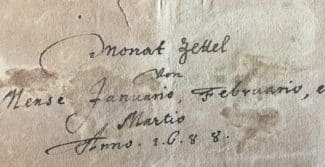 Monat Zettel
von
Mense Januario, Februario, e
Martio
Anno. 1.6.8 8.